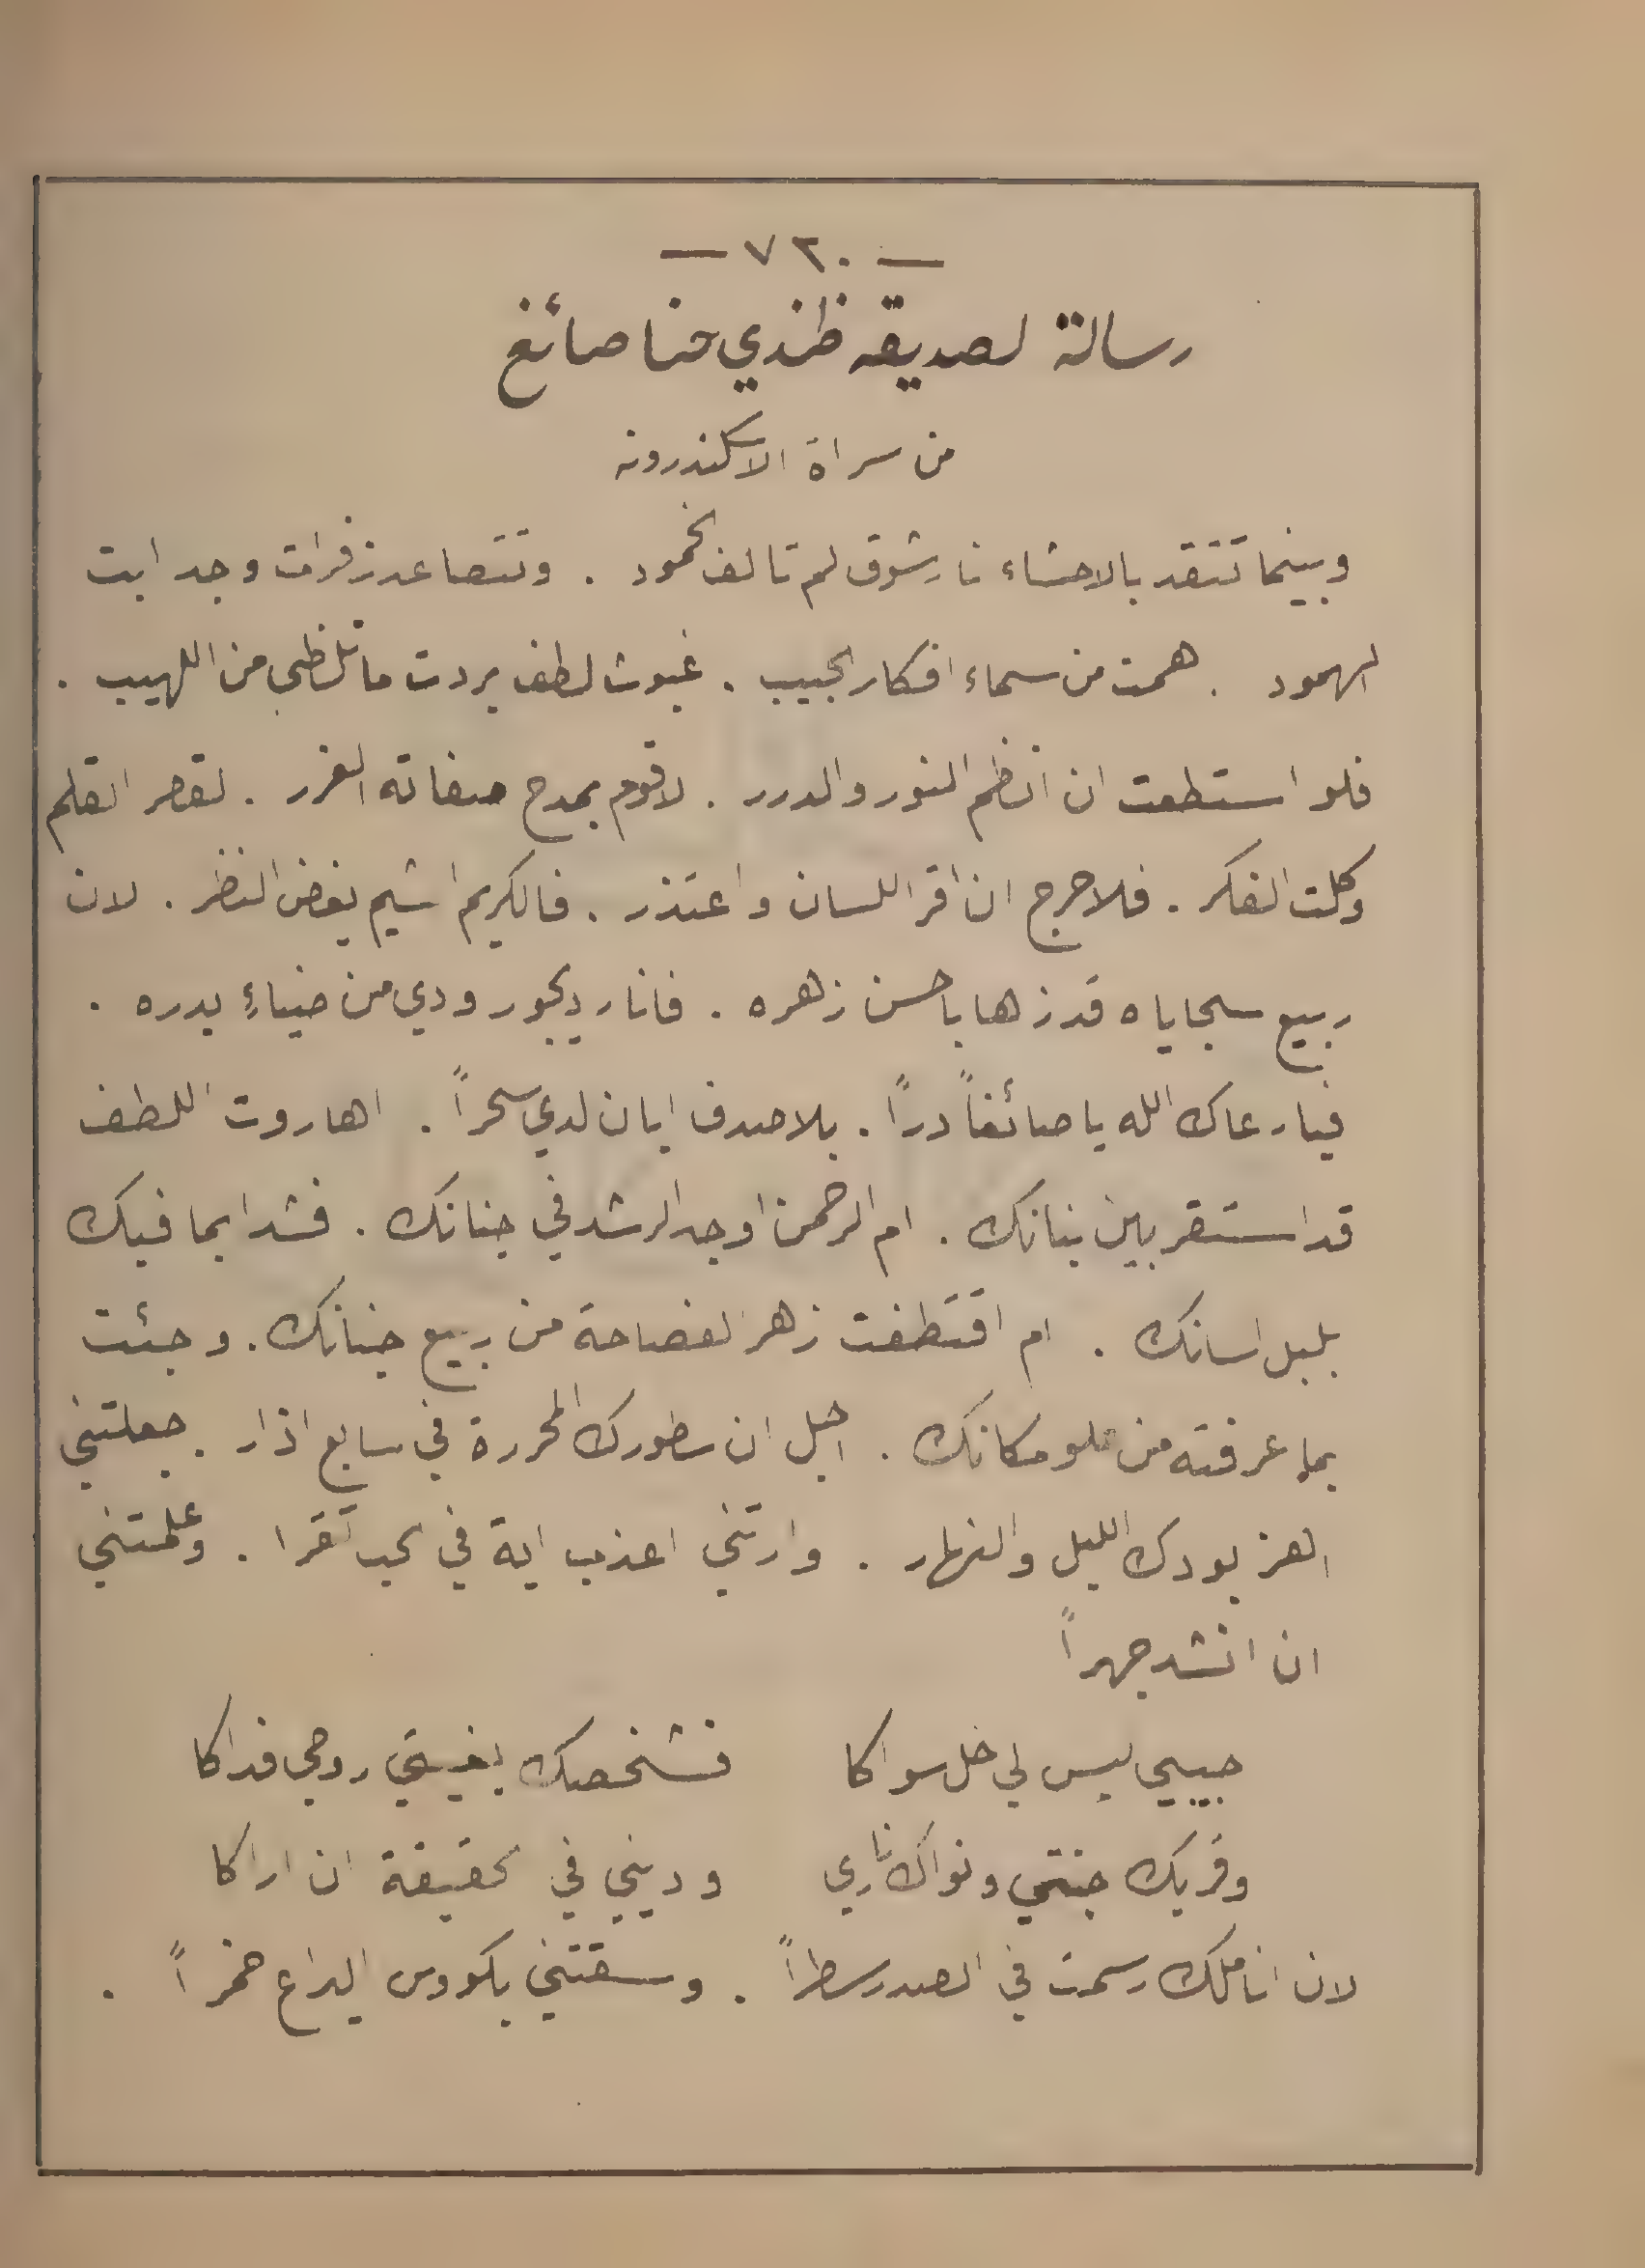 — ٧٣٠ —
رسالة لصديقه ظندي حنا صائغ
من سراة الاسكندرونه
وبينما تتقد بالاحشاء نار شوق لم تالف الخمود . وتتصاعد زفرات وجد ابت
الهمود . همت من سماء افكار الحبيب . غيوث لطف بردت ما تلظى من اللهيب .
فلو استطعت ان انظم النور والدرر . لاقوم بمدح صفاته الغرر . لقصر القلم
وكلت الفكر . فلا حرج ان اقر اللسان واعتذر . فالكريم اشيم بغض النظر . لان
ربيع سجاياه قد زها باحسن زهره . فانار ديجور ودي من ضياءِ بدره .
فيا رعاك الله يا صائغاً دراً . بلا صدف ابان لدي سحراً . اهاروت اللطف
قد استقر بين بنانك . ام الرحمن اوجد الرشد في جنانك . فشدا بما فيك
بلبل لسانك . ام اقتطفت زهر الفصاحة من ربيع جنانك . وجئت
بما عرفته من علو مكانك . اجل ان سطورك المحررة في سابع اذار . جعلتني
العز بودك الليل والنهار . وارتني اعذب اية في الحب تقرا . وعلمتني
ان انشد جهراً
حبيبي ليس لي خل سواكا فشخصك بغيتي روحي فداكا
وقربك جنتي ونواك ناري وديني في الحقيقة ان اراكا
لان اناملك رسمت في الصدر سطراً . وسقتني بكووس اليراع خمراً .